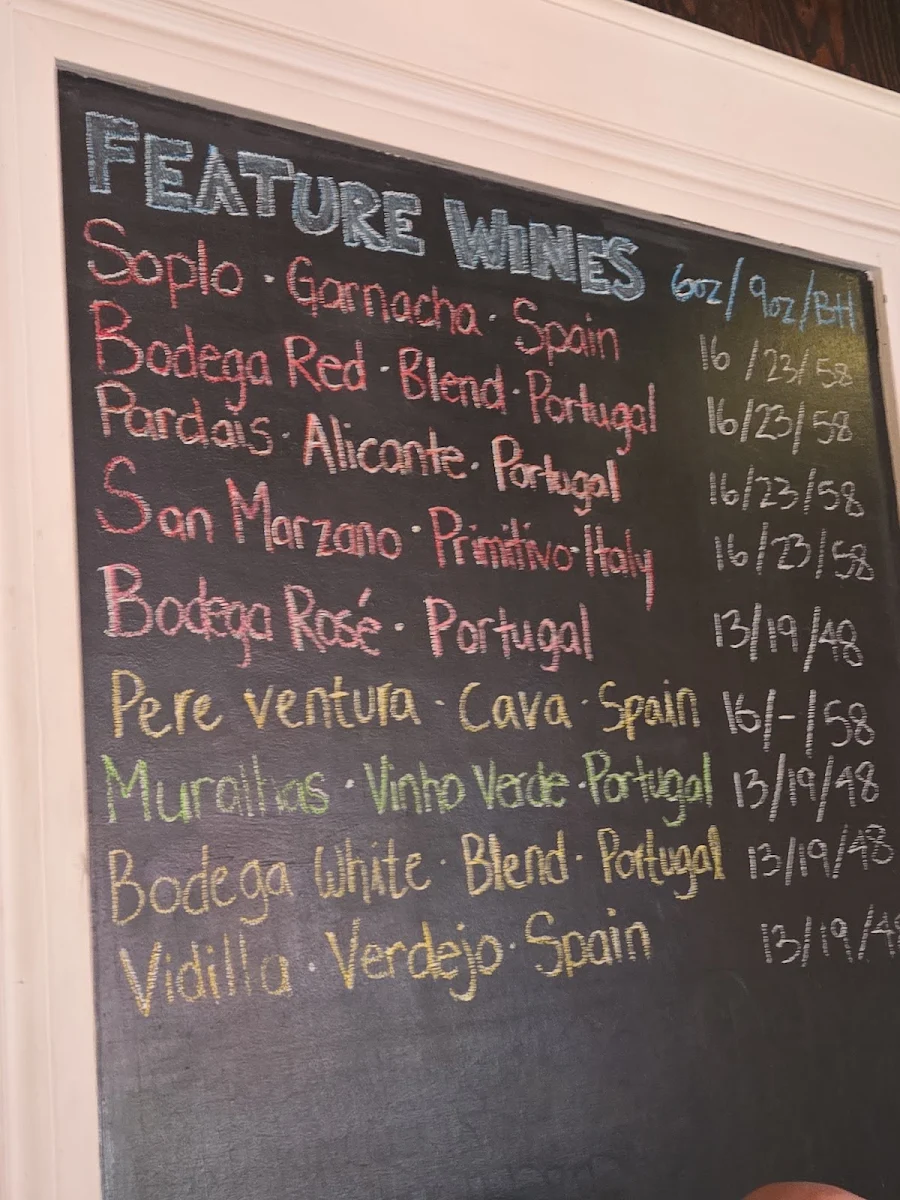 FEATURE WINES 6oz/9oz/BH
Soplo · Garnacha · Spain 16/23/58
Bodega Red · Blend · Portugal 16/23/58
Pardais · Alicante · Portugal 16/23/58
San Marzano · Primitivo · Italy 16/23/58
Bodega Rosé · Portugal 13/19/48
Pere Ventura · Cava · Spain 16/-/58
Muralhas · Vinho Verde · Portugal 13/19/48
Bodega White · Blend · Portugal 13/19/48
Vidilla · Verdejo · Spain 13/19/4